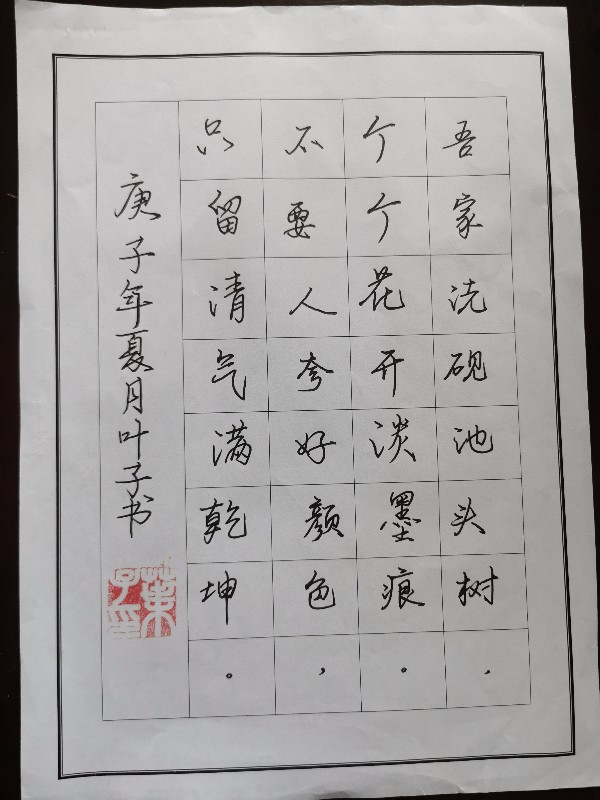 吾家洗砚池头树，
个个花开淡墨痕。
不要人夸好颜色，
只留清气满乾坤。
庚子年夏月叶子书
葉子印